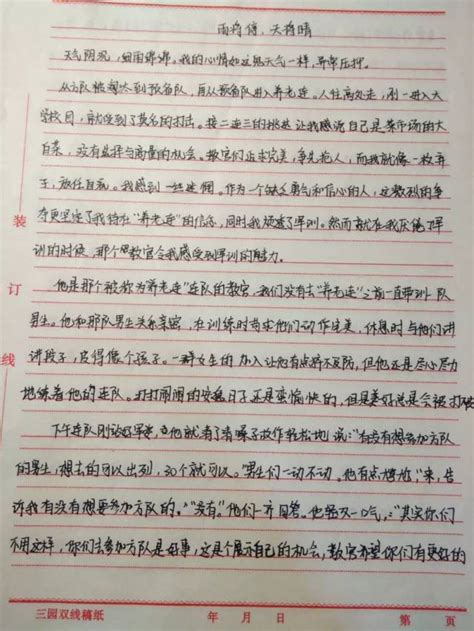 雨将停，天将晴
天气阴沉，细雨绵绵。我的心情如这鬼天气一样，异常压抑。
从方队被淘汰到预备队，再从预备队进入养老连。人往高处走，刚一进入大
学校园，就受到了莫名的打击。接二连三的挑选让我感觉自己是菜市场的大
白菜，没有选择与商量的机会。教官们追求完美，争先抢人，而我就像一枚弃
，放任自我。我感到一丝迷惘。作为一个缺乏勇气和信心的人，这激烈的争
夺更坚定了我待在“养老连”的信念，同时我倾覆了军训。然而就在我厌倦了军
训的时候，那个教官令我感受到军训的魅力。
他是那个被称为养老连”连队的教官，我们没有去“养老连”之前一直带训队
男生。他和那队男生关系亲密，在训练时苛求他们动作完美，休息时与他们讲
讲段子，皮得像个孩子。一群女生的加入让他有点猝不及防，但他还是尽心尽力
地操着他的连队。打打闹闹的安逸日子还是蛮愉快的，但是美好总是会被打破
下午连队刚站好军姿，他就清了清嗓子故作轻松地说：“有没有想参加方队
的男生，想去的可以出列，30个就可以。”男生们一动不动。他有点尴尬：“来，告
诉我有没有想要参加方队的。”“没有。”他们一齐回答。他轻叹一口气，：“其实你们
不用这样，你们去参加方队是好事，这是个展示自己的机会，教官希望你们有更好的
装
订
线
三园双线稿纸
年 月 日
第 页